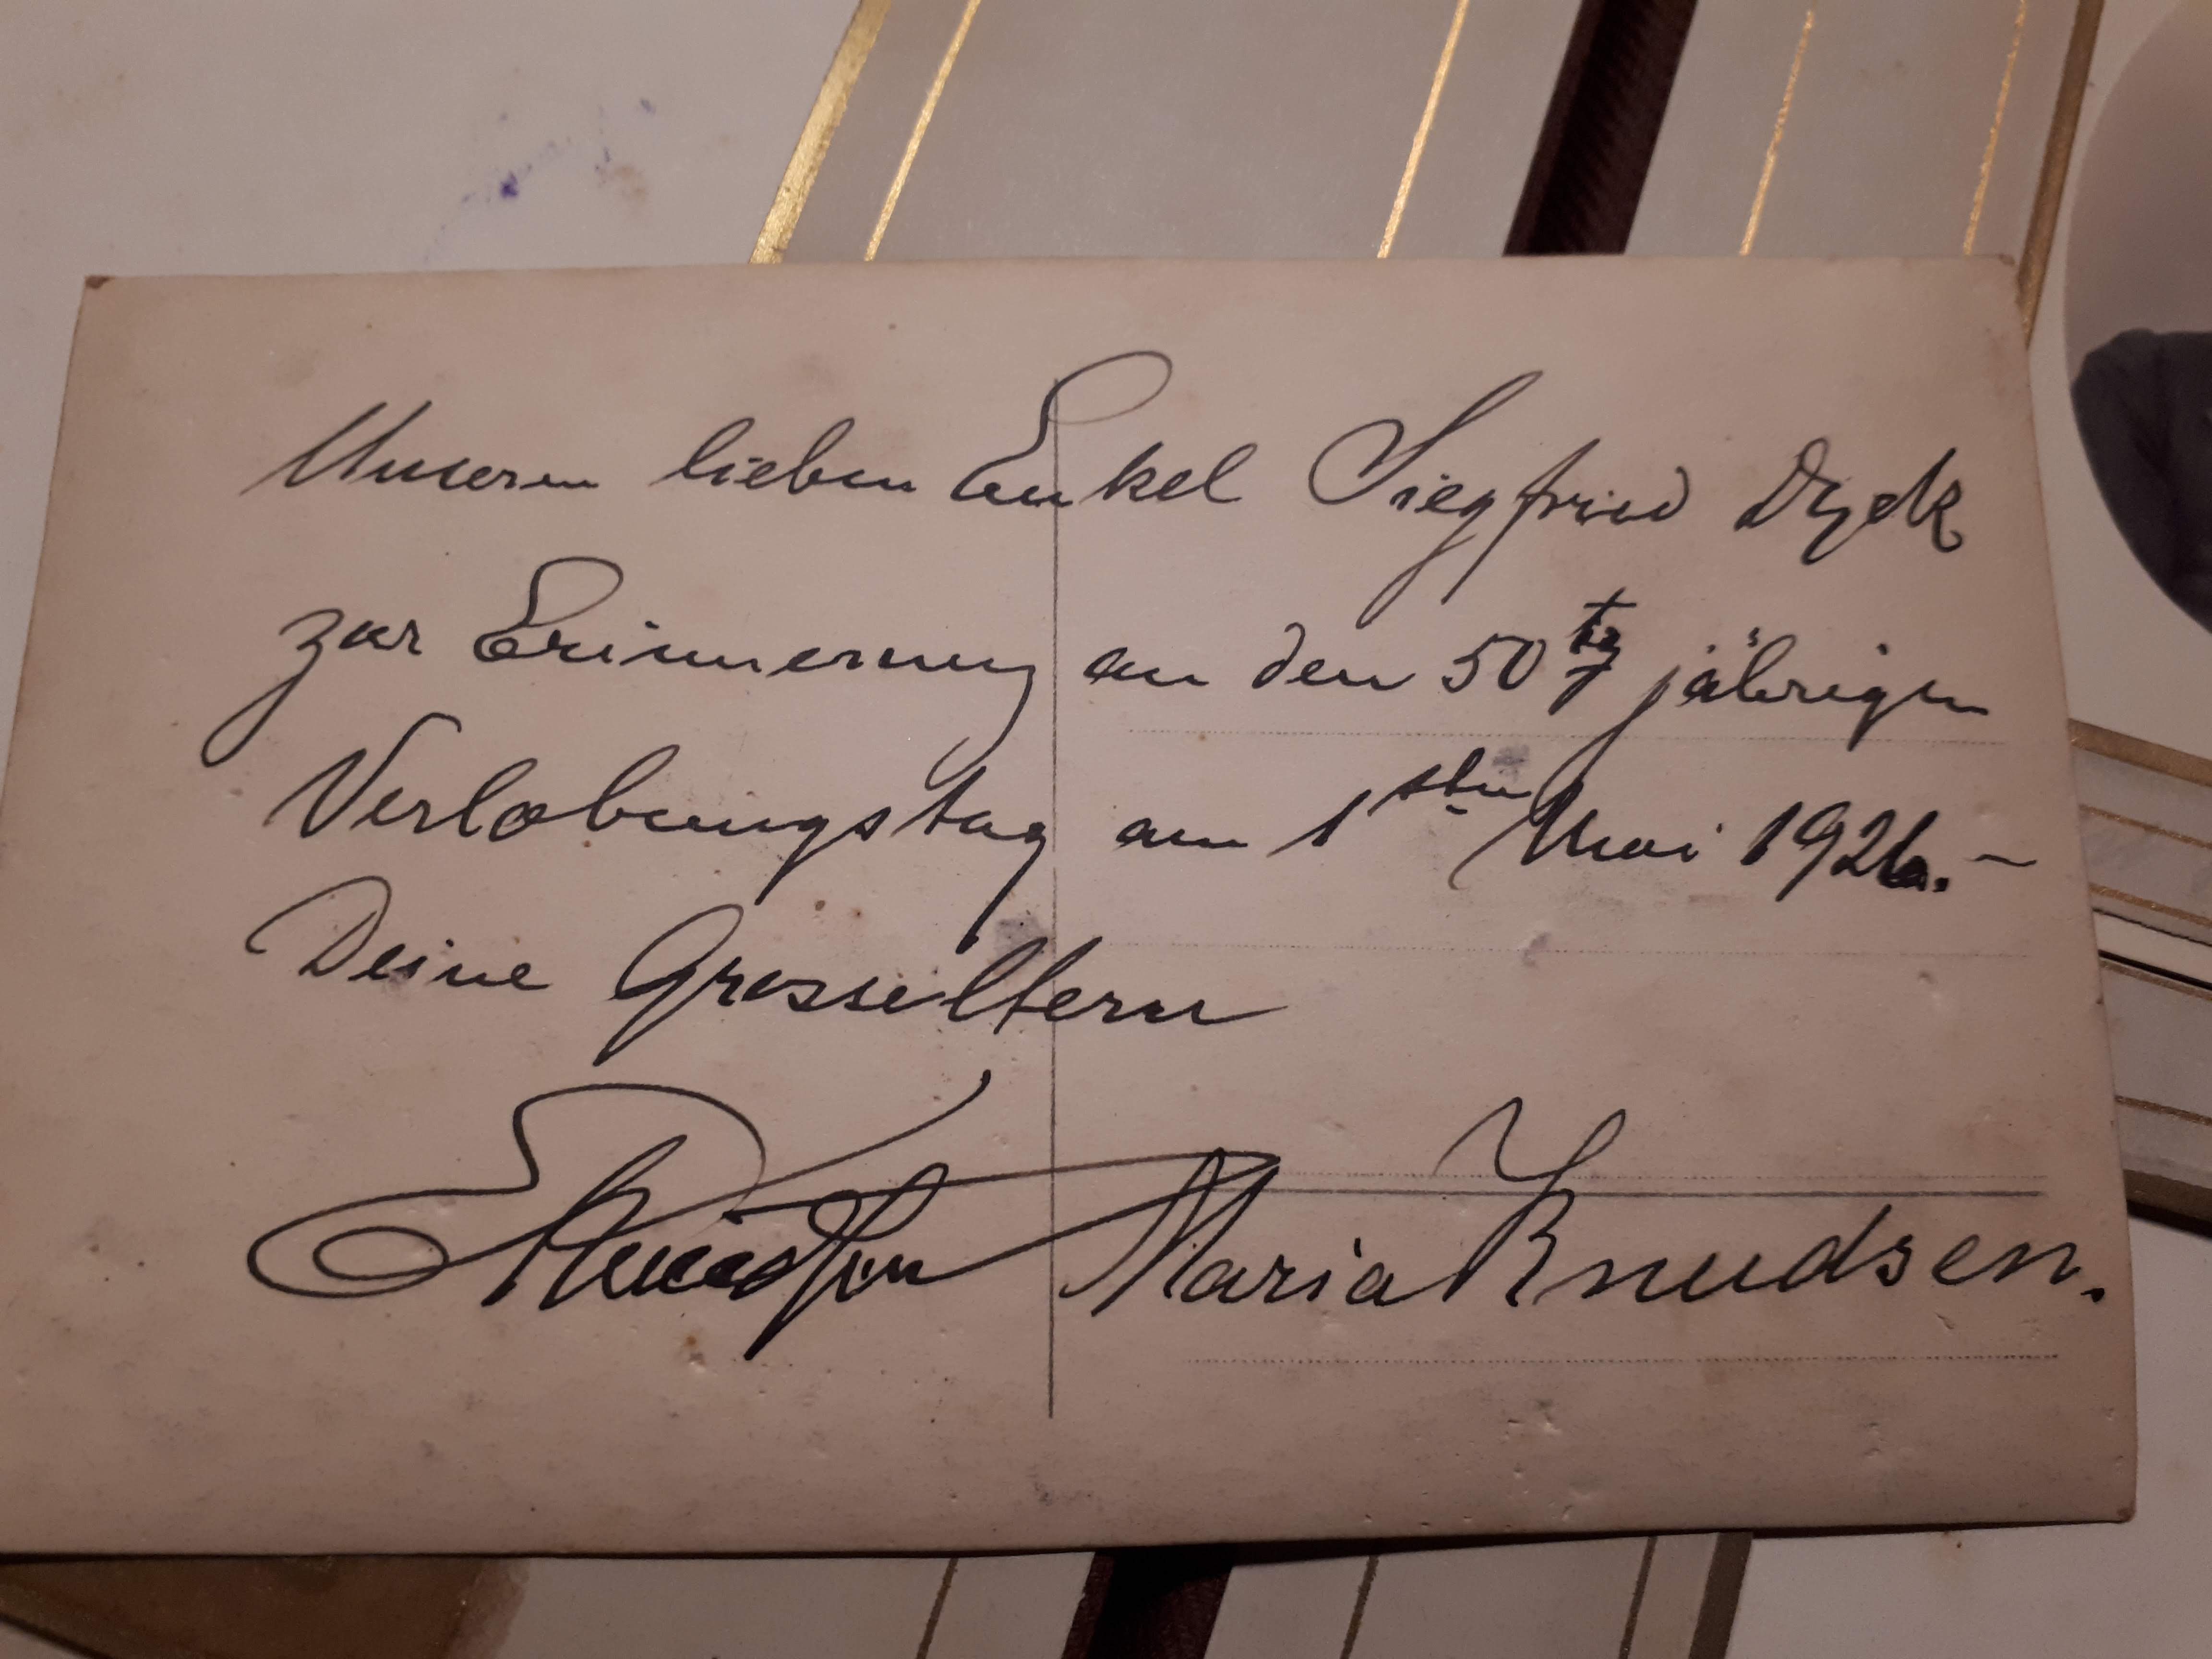 Unseren lieben Enkel Siegfried Dyck
zur Erinnerung an den 50tzg jährigen
Verlobungstag am 1sten Mai 1926.-
Deine Grosseltern
Maria Knudsen.